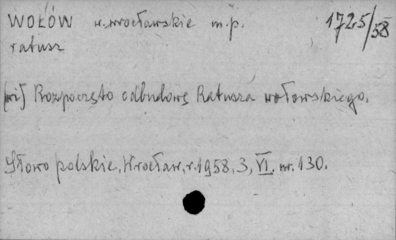 WOŁÓW w.wrocławskie m.p. 1725/58
ratusz
[wi] Rozpoczęto odbudowę Ratusza wołowskiego.
Słowo polskie, Wrocław, r.1958, 3, VI. nr. 130.